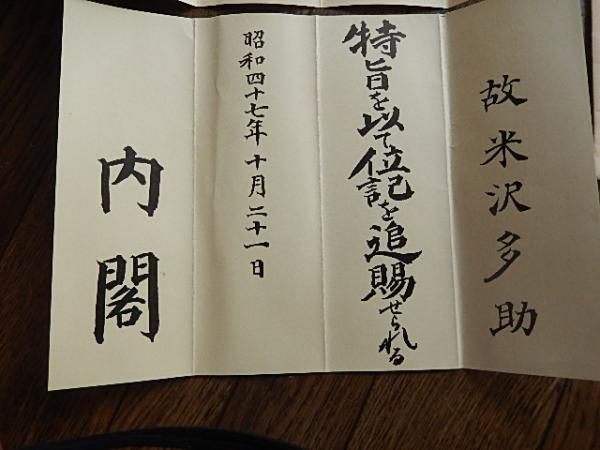 故米沢多助
特旨を以て位記を追賜せられる
昭和四十七年十月二十一日
内閣